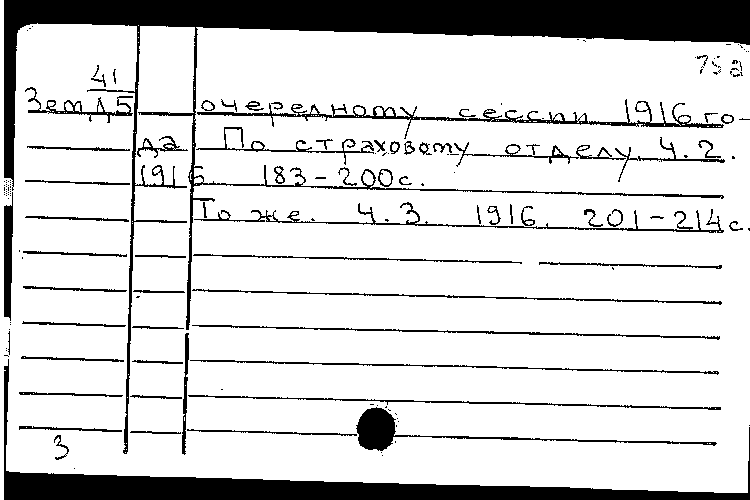 75а
41
Зем Д5 очередному сессии 1916 го-
да По страховому отделу. Ч. 2.
1916 183-200с.
То же. Ч. 3. 1916. 201-214с.
3